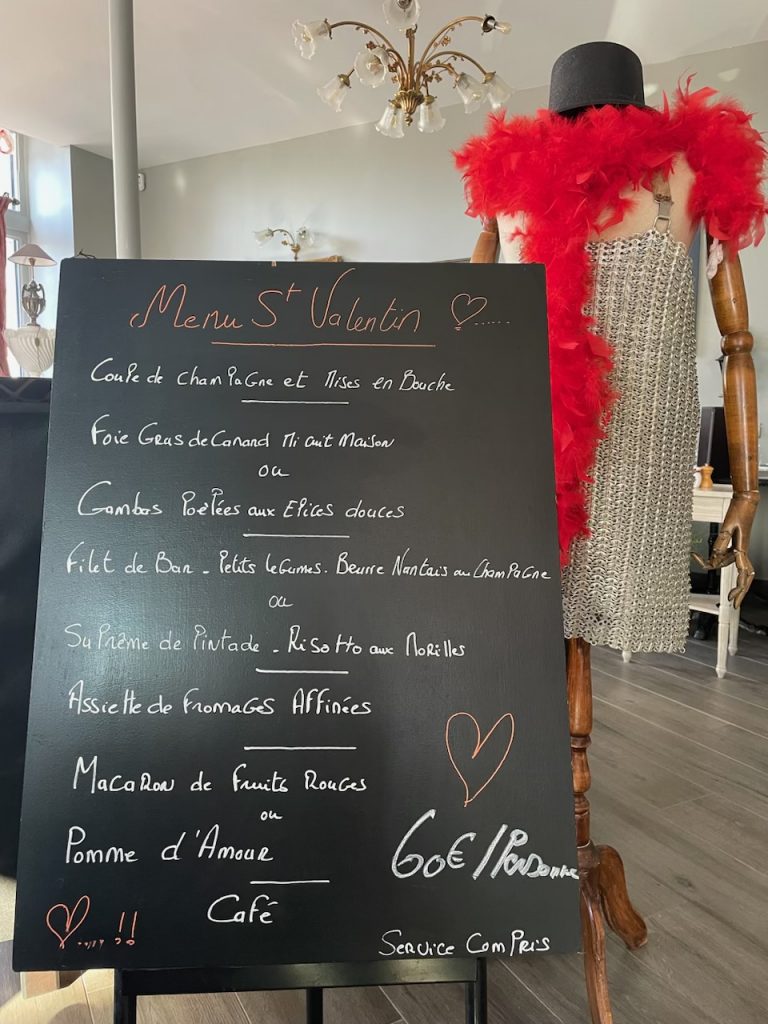 Menu St Valentin
Coupe de Champagne et Mises en Bouche
Foie Gras de Canard Mi cuit Maison
ou
Gambas Poêlées aux Epices douces
Filet de Bar - Petits légumes - Beurre Nantais au Champagne
ou
Suprême de Pintade - Risotto aux Morilles
Assiette de Fromages Affinées
Macaron de Fruits Rouges
ou
Pomme d'Amour
60€/Personne
Café
!!
Service Compris